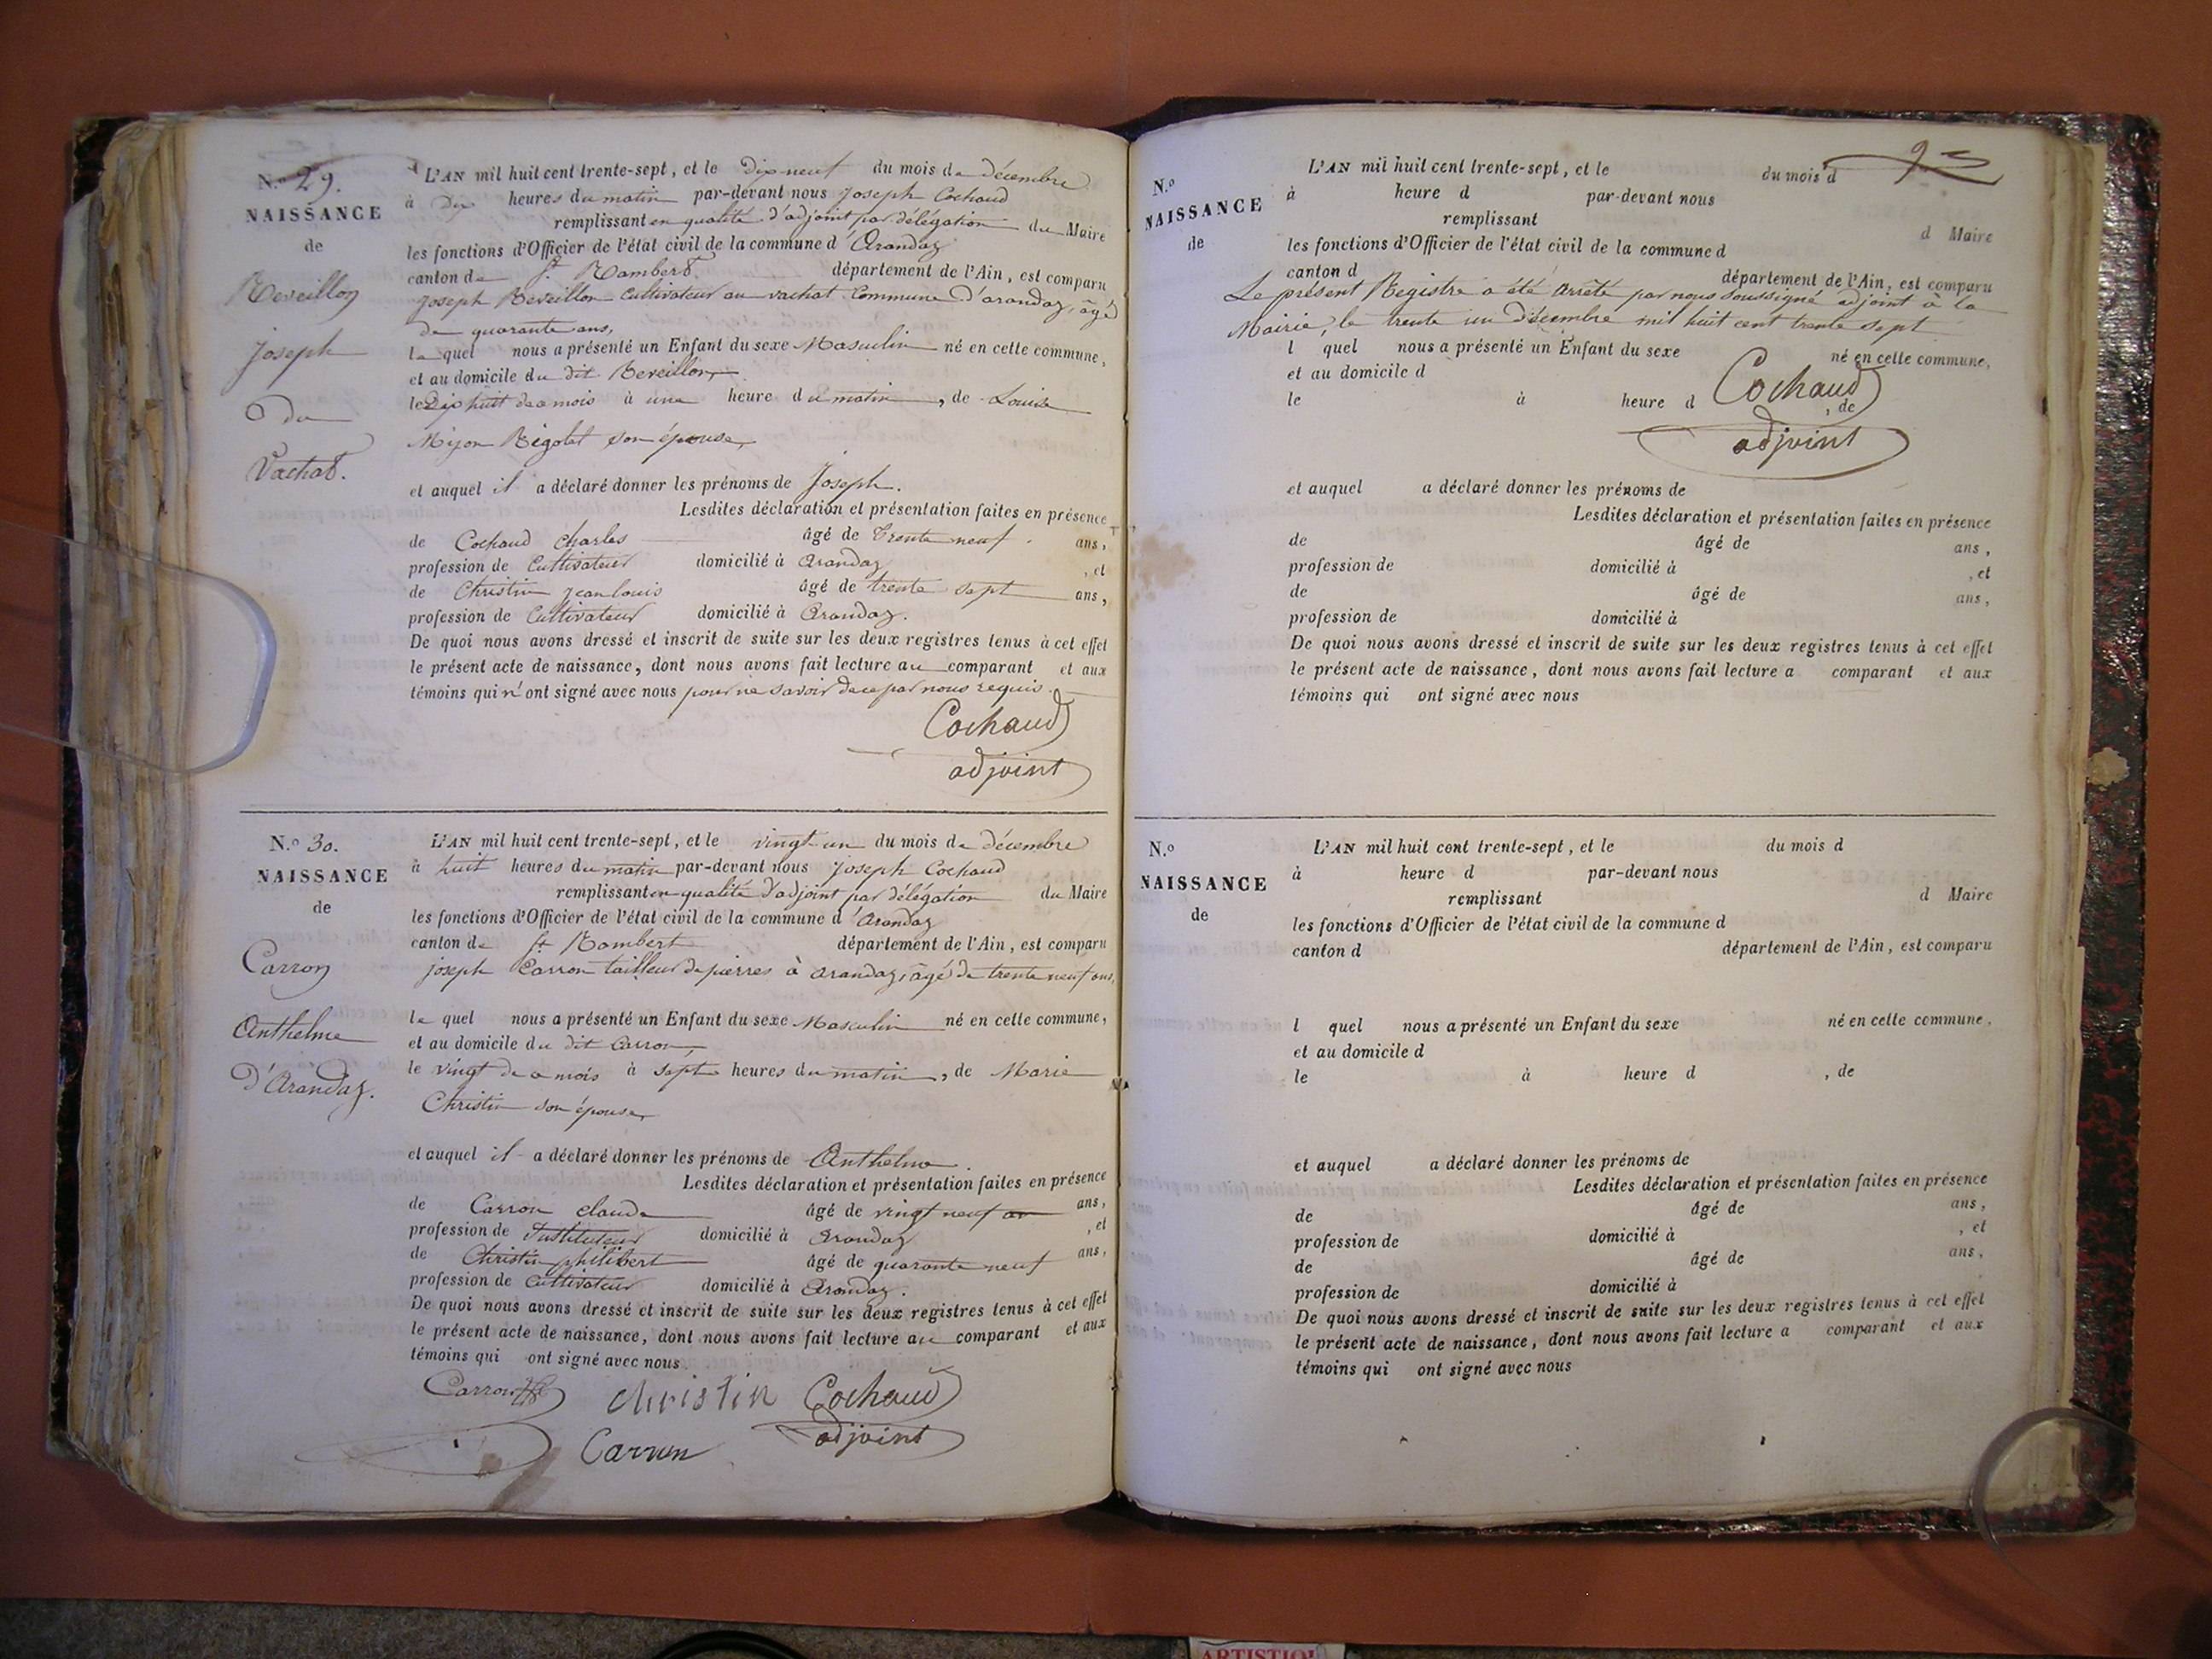 N.º 29.
NAISSANCE
de
Reveillon
Joseph
Du
Vachat.
L'AN mil huit cent trente-sept, et le Dix-neuf du mois de décembre
à Dix heures du matin par-devant nous Joseph Cochaud
remplissant en qualité d'adjoint, par délégation du Maire
les fonctions d'Officier de l'état civil de la commune d'Arandaz
canton de St. Rambert. département de l'Ain, est comparu
Joseph Reveillon Cultivateur au vachat Commune d'arandaz, âgé
de quarante ans,
lequel nous a présenté un Enfant du sexe Masculin né en cette commune,
et au domicile du dit Reveillon,
le Dix huit de ce mois à une heure du matin, de Louise
Mijon Rigolet son épouse,
et auquel il a déclaré donner les prénoms de Joseph.
Lesdites déclaration et présentation faites en présence
de Cochaud Charles âgé de Trente neuf ans,
profession de Cultivateur domicilié à Arandaz, et
de Christin Jean louis âgé de trente sept ans,
profession de Cultivateur domicilié à Arandaz.
De quoi nous avons dressé et inscrit de suite sur les deux registres tenus à cet effet
le présent acte de naissance, dont nous avons fait lecture au comparant et aux
témoins qui n'ont signé avec nous pour ne savoir de ce par nous requis.
Cochaud
adjoint
N.º 30.
NAISSANCE
de
Carron
Anthelme
D'Arandaz.
L'AN mil huit cent trente-sept, et le vingt-un du mois de décembre
à huit heures du matin par-devant nous Joseph Cochaud
remplissant en qualité d'adjoint par délégation du Maire
les fonctions d'Officier de l'état civil de la commune d'Arandaz
canton de St Rambert département de l'Ain, est comparu
joseph Carron tailleur de pierres à arandaz, âgé de trente neuf ans,
lequel nous a présenté un Enfant du sexe Masculin né en cette commune,
et au domicile du dit Carron,
le vingt de ce mois à sept heures du matin, de Marie
Christin son épouse,
et auquel il a déclaré donner les prénoms de Anthelme.
Lesdites déclaration et présentation faites en présence
de Carron claude âgé de vingt neuf ans,
profession de Instituteur domicilié à Arandaz, et
de Christin philibert âgé de quarante neuf ans,
profession de Cultivateur domicilié à Arandaz.
De quoi nous avons dressé et inscrit de suite sur les deux registres tenus à cet effet
le présent acte de naissance, dont nous avons fait lecture au comparant et aux
témoins qui ont signé avec nous.
Carron christin Cochaud
Carron adjoint
N.º
NAISSANCE
de
L'AN mil huit cent trente-sept, et le du mois d
à heure d par-devant nous
remplissant d Maire
les fonctions d'Officier de l'état civil de la commune d
canton d département de l'Ain, est comparu
Le présent Registre a été arrêté par nous soussigné adjoint à la
Mairie, le trente un Décembre mil huit cent trente sept
l quel nous a présenté un Enfant du sexe né en cette commune,
et au domicile d
le à heure d , de
Cochaud
adjoint
et auquel a déclaré donner les prénoms de
Lesdites déclaration et présentation faites en présence
de âgé de ans,
profession de domicilié à , et
de âgé de ans,
profession de domicilié à
De quoi nous avons dressé et inscrit de suite sur les deux registres tenus à cet effet
le présent acte de naissance, dont nous avons fait lecture a comparant et aux
témoins qui ont signé avec nous
N.º
NAISSANCE
de
L'AN mil huit cent trente-sept, et le du mois d
à heure d par-devant nous
remplissant d Maire
les fonctions d'Officier de l'état civil de la commune d
canton d département de l'Ain, est comparu
l quel nous a présenté un Enfant du sexe né en cette commune,
et au domicile d
le à heure d , de
et auquel a déclaré donner les prénoms de
Lesdites déclaration et présentation faites en présence
de âgé de ans,
profession de domicilié à , et
de âgé de ans,
profession de domicilié à
De quoi nous avons dressé et inscrit de suite sur les deux registres tenus à cet effet
le présent acte de naissance, dont nous avons fait lecture a comparant et aux
témoins qui ont signé avec nous